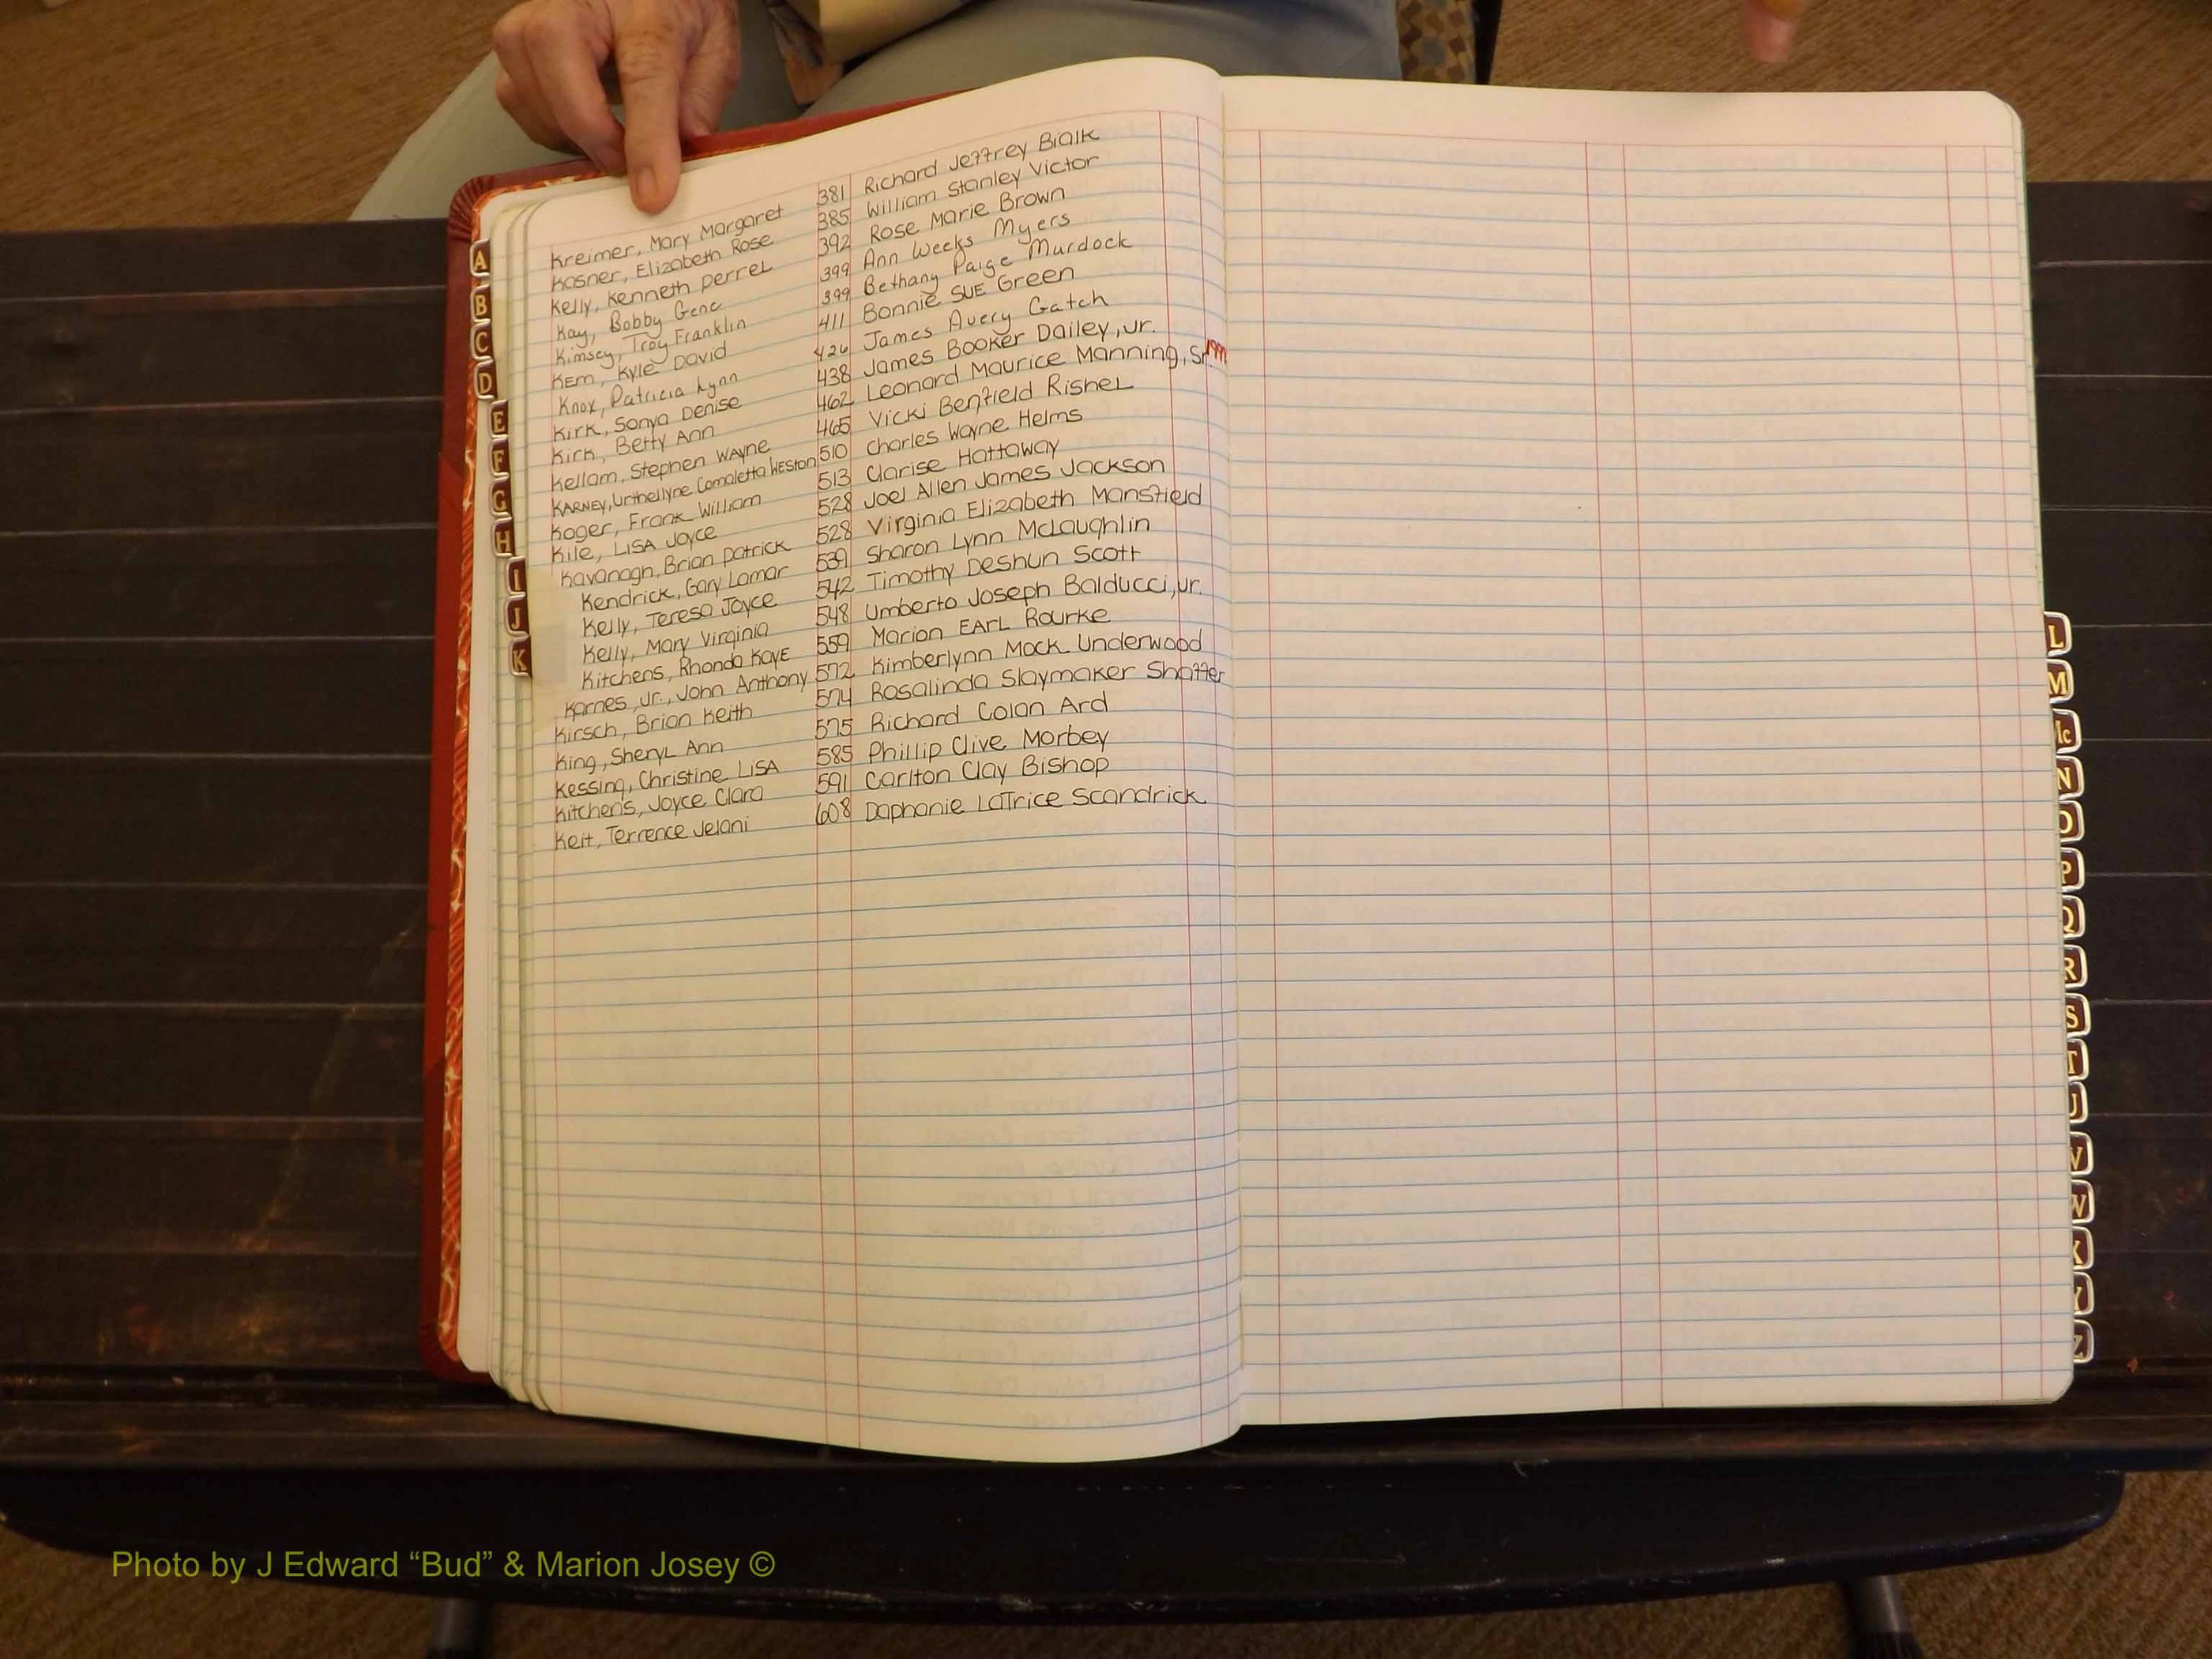 Kreimer, Mary Margaret 381 Richard Jeffrey Bialk
Kasner, Elizabeth Rose 385 William Stanley Victor
Kelly, Kenneth Perrel 392 Rose Marie Brown
Kay, Bobby Gene 399 Ann Weeks Myers
Kimsey, Troy Franklin 399 Bethany Paige Murdock
Kem, Kyle David 411 Bonnie Sue Green
Knox, Patricia Lynn 426 James Avery Gatch
Kirk, Sonya Denise 438 James Booker Dailey, Jr.
Kirk, Betty Ann 462 Leonard Maurice Manning, Sr.
Kellam, Stephen Wayne 465 Vicki Benfield Rishel
Karney, Urthellyne Comaletta Weston 510 Charles Wayne Helms
Koger, Frank William 513 Clarise Hattaway
Kile, Lisa Joyce 528 Joel Allen James Jackson
Kavanagh, Brian Patrick 528 Virginia Elizabeth Mansfield
Kendrick, Gary Lamar 539 Sharon Lynn McLaughlin
Kelly, Teresa Joyce 542 Timothy Deshun Scott
Kelly, Mary Virginia 548 Umberto Joseph Balducci, Jr.
Kitchens, Rhonda Kaye 559 Marion Earl Rourke
Karnes, Jr., John Anthony 572 Kimberlynn Mock Underwood
Kirsch, Brian Keith 574 Rosalinda Slaymaker Shaffer
King, Sheryl Ann 575 Richard Colan Ard
Kessing, Christine Lisa 585 Phillip Clive Morbey
Kitchens, Joyce Clara 591 Carlton Clay Bishop
Keit, Terrence Jelani 608 Daphanie LaTrice Scandrick
A
B
C
D
E
F
G
H
I
J
K
L
M
Mc
N
O
P
Q
R
S
T
U
V
W
X
Y
Z
Photo by J Edward “Bud” & Marion Josey ©